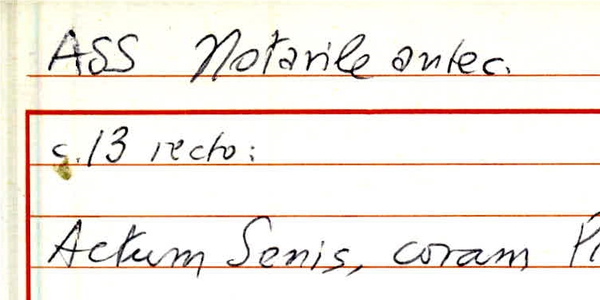 ASS Notarile antec.
c.13 recto:
Actum Senis, coram